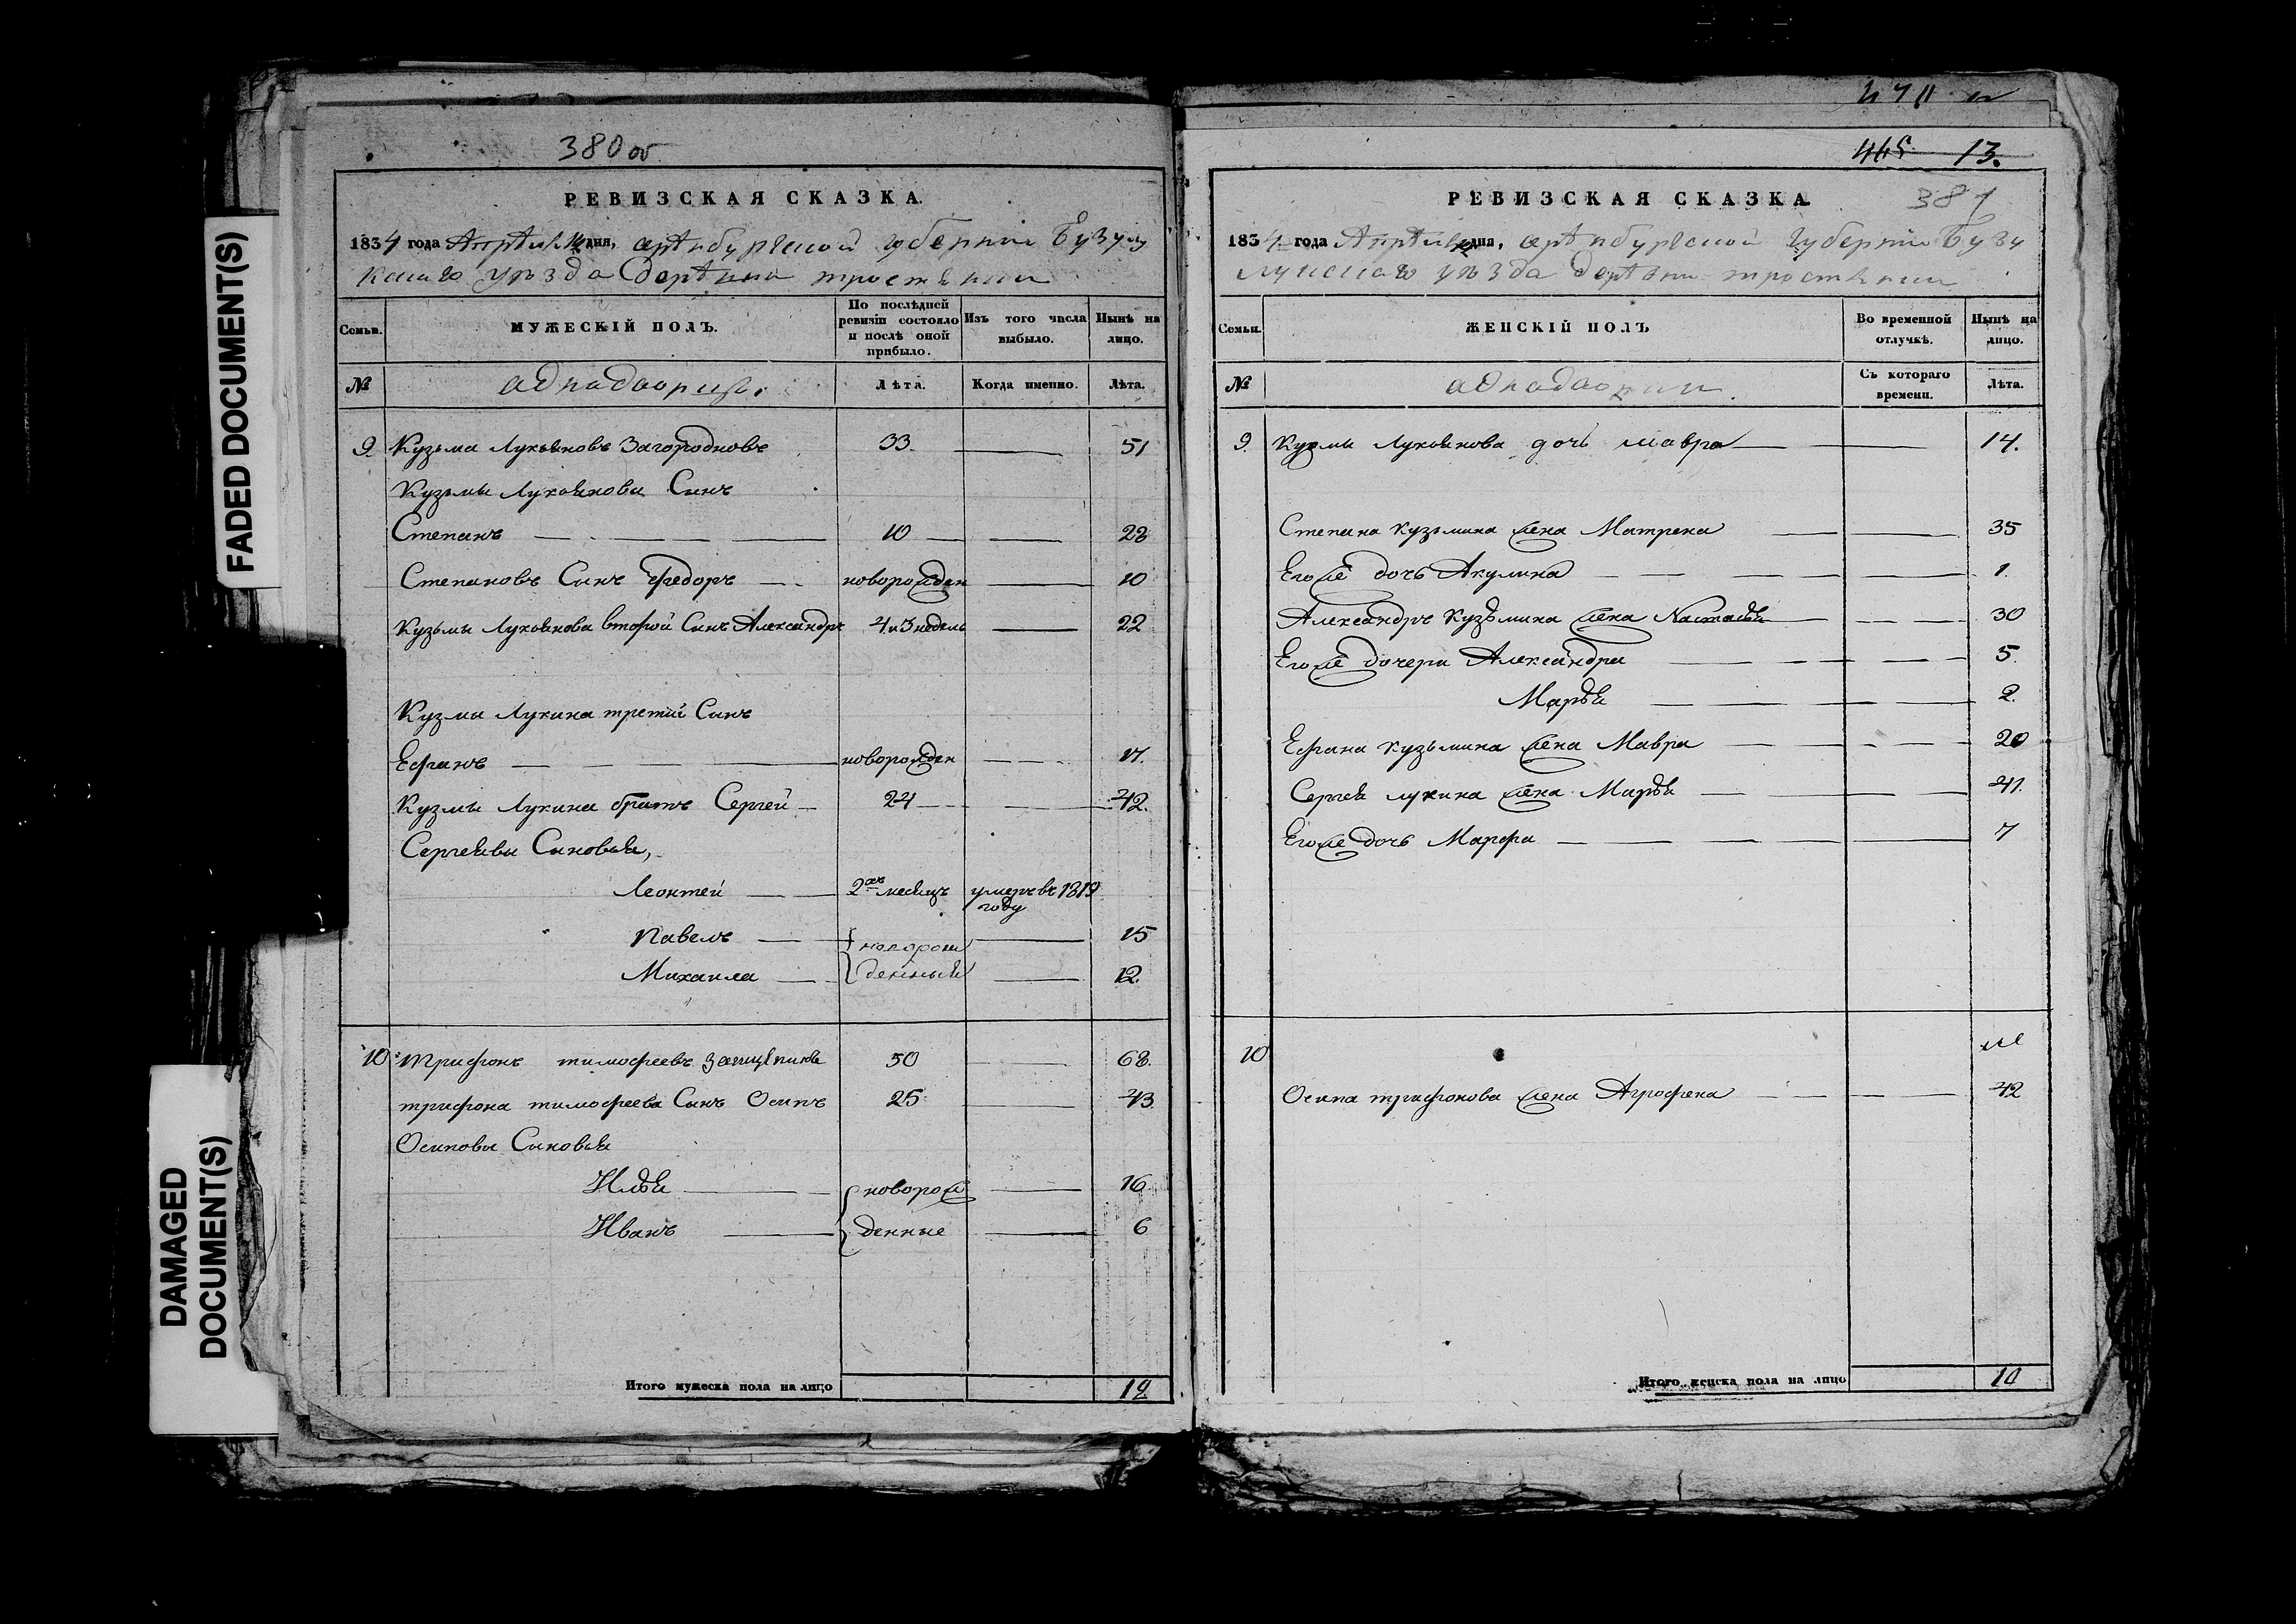 FADED DOCUMENT(S)
DAMAGED
DOCUMENT(S)
380 об
РЕВИЗСКАЯ СКАЗКА.
1834 года Апреля дня, губернии Бузулу
каго уезда
Семьи.
МУЖЕСКІЙ ПОЛЪ.
По послѣдней ревизіи состояло и послѣ оной прибыло.
Изъ того числа выбыло.
Нынѣ на лицо.
№
аднадворцы.
Лѣта.
Когда именно.
Лѣта.
9. Кузьма Лукьяновъ Загородновъ 33. 51
Кузьмы Лукьянова Сынъ
Степанъ 10 28
Степановъ Сынъ Федоръ новорожден 10
Кузьмы Лукьянова второй Сынъ Александръ 4 и 3 недель 22
Кузмы Лукина третий Сынъ
Ефанъ новорожден 17.
Кузмы Лукина братъ Сергей 24 42.
Сергеявы Сыновья,
Леонтей 2ухъ месяцъ умеръ въ 1819
году
Павелъ новорож 15
Михаила денныя 12.
10 Трифонъ тимофеевъ 50 68.
трифона тимофеева Сынъ Осипъ 25 43
Осиповы Сыновья
Илья новорож 16
Иванъ денные 6
Итого мужеска пола на лицо 12
13.
381
РЕВИЗСКАЯ СКАЗКА
1834 года Апреля дня, Губернии Бузу
лускаго уезда
Семьи.
ЖЕНСКІЙ ПОЛЪ
Во временной отлучкѣ.
Нынѣ на лицо.
№
аднадворки.
Съ котораго времени.
Лѣта.
9. Кузмы Лукьянова дочь мавра 14.
Степана Кузьмина жена Матрена 35
Егоже дочь Акулина 1.
Александръ Кузьмина жена Настасья 30
Егоже дочери Александра 5.
Марья 2.
Ефана Кузьмина жена Мавра 20
Сергея лукина жена Марья 41.
Егоже дочь Марфа 7
10
Осипа трифонова жена Агрофена 42
Итого женска пола на лицо 10